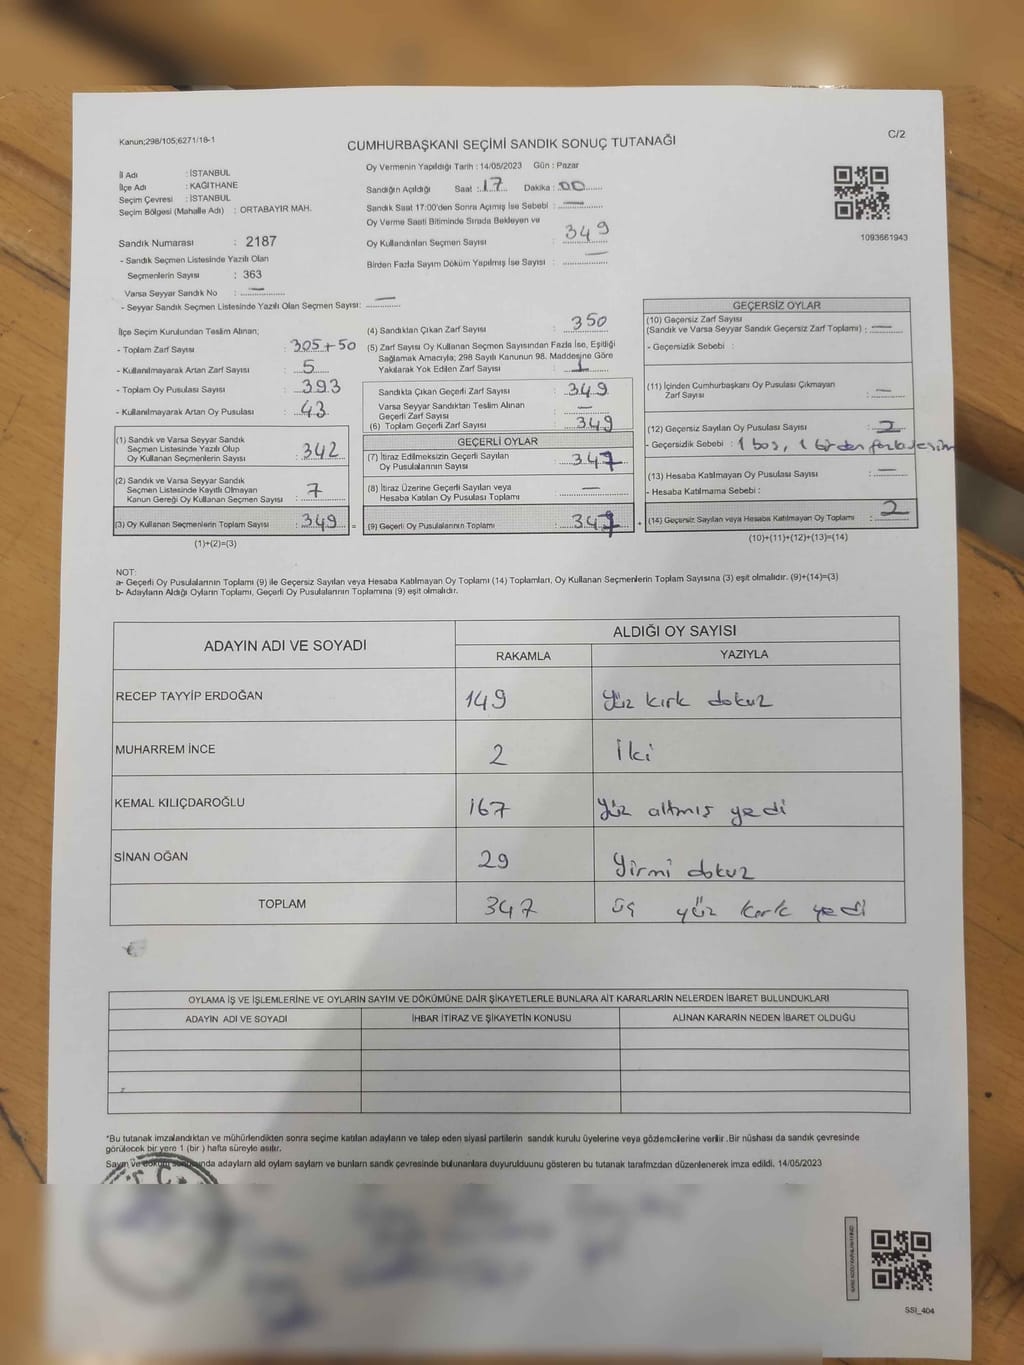 Kanun;298/105;6271/18-1
CUMHURBAŞKANI SEÇİMİ SANDIK SONUÇ TUTANAĞI
C/2
İl Adı : İSTANBUL
İlçe Adı : KAĞITHANE
Seçim Çevresi : İSTANBUL
Seçim Bölgesi (Mahalle Adı) : ORTABAYIR MAH.
Sandık Numarası : 2187
- Sandık Seçmen Listesinde Yazılı Olan
Seçmenlerin Sayısı : 363
Varsa Seyyar Sandık No : —
- Seyyar Sandık Seçmen Listesinde Yazılı Olan Seçmen Sayısı: —
Oy Vermenin Yapıldığı Tarih : 14/05/2023 Gün : Pazar
Sandığın Açıldığı Saat : 17 Dakika : 00
Sandık Saat 17:00'den Sonra Açımış İse Sebebi : —
Oy Verme Saati Bitiminde Sırada Bekleyen ve
Oy Kullandırılan Seçmen Sayısı : 349
Birden Fazla Sayım Döküm Yapılmış İse Sayısı : —
1093661943
İlçe Seçim Kurulundan Teslim Alınan;
- Toplam Zarf Sayısı : 305+50
- Kullanılmayarak Artan Zarf Sayısı : 5
- Toplam Oy Pusulası Sayısı : 393
- Kullanılmayarak Artan Oy Pusulası : 43
(1) Sandık ve Varsa Seyyar Sandık
Seçmen Listesinde Yazılı Olup
Oy Kullanan Seçmenlerin Sayısı : 342
(2) Sandık ve Varsa Seyyar Sandık
Seçmen Listesinde Kayıtlı Olmayan
Kanun Gereği Oy Kullanan Seçmen Sayısı : 7
(3) Oy Kullanan Seçmenlerin Toplam Sayısı : 349 =
(1)+(2)=(3)
(4) Sandıktan Çıkan Zarf Sayısı : 350
(5) Zarf Sayısı Oy Kullanan Seçmen Sayısından Fazla İse, Eşitliği
Sağlamak Amacıyla; 298 Sayılı Kanunun 98. Maddesine Göre
Yakılarak Yok Edilen Zarf Sayısı : 1
Sandıkta Çıkan Geçerli Zarf Sayısı : 349
Varsa Seyyar Sandıktan Teslim Alınan
Geçerli Zarf Sayısı : —
(6) Toplam Geçerli Zarf Sayısı : 349
GEÇERLİ OYLAR
(7) İtiraz Edilmeksizin Geçerli Sayılan
Oy Pusulalarının Sayısı : 347
(8) İtiraz Üzerine Geçerli Sayılan veya
Hesaba Katılan Oy Pusulası Toplamı : —
(9) Geçerli Oy Pusulalarının Toplamı : 347 +
GEÇERSİZ OYLAR
(10) Geçersiz Zarf Sayısı
(Sandık ve Varsa Seyyar Sandık Geçersiz Zarf Toplamı) : —
- Geçersizlik Sebebi :
(11) İçinden Cumhurbaşkanı Oy Pusulası Çıkmayan
Zarf Sayısı : —
(12) Geçersiz Sayılan Oy Pusulası Sayısı : 2
- Geçersizlik Sebebi : 1 boş, 1 birden fazla
(13) Hesaba Katılmayan Oy Pusulası Sayısı : —
- Hesaba Katılmama Sebebi :
(14) Geçersiz Sayılan veya Hesaba Katılmayan Oy Toplamı : 2
(10)+(11)+(12)+(13)=(14)
NOT:
a- Geçerli Oy Pusulalarının Toplamı (9) ile Geçersiz Sayılan veya Hesaba Katılmayan Oy Toplamı (14) Toplamları, Oy Kullanan Seçmenlerin Toplam Sayısına (3) eşit olmalıdır. (9)+(14)=(3)
b- Adayların Aldığı Oyların Toplamı, Geçerli Oy Pusulalarının Toplamına (9) eşit olmalıdır.
ADAYIN ADI VE SOYADI
ALDIĞI OY SAYISI
RAKAMLA YAZIYLA
RECEP TAYYİP ERDOĞAN 149 Yüz kırk dokuz
MUHARREM İNCE 2 İki
KEMAL KILIÇDAROĞLU 167 Yüz altmış yedi
SİNAN OĞAN 29 Yirmi dokuz
TOPLAM 347 üç yüz kırk yedi
OYLAMA İŞ VE İŞLEMLERİNE VE OYLARIN SAYIM VE DÖKÜMÜNE DAİR ŞİKAYETLERLE BUNLARA AİT KARARLARIN NELERDEN İBARET BULUNDUKLARI
ADAYIN ADI VE SOYADI İHBAR İTİRAZ VE ŞİKAYETİN KONUSU ALINAN KARARIN NEDEN İBARET OLDUĞU
*Bu tutanak imzalandıktan ve mühürlendikten sonra seçime katılan adayların ve talep eden siyasi partilerin sandık kurulu üyelerine veya gözlemcilerine verilir .Bir nüshası da sandık çevresinde
görülecek bir yere 1 (bir ) hafta süreyle asılır.
Sayım ve döküm sonucunda adayların ald oyların sayların ve bunların sandk çevresinde bulunanlara duyurulduunu gösteren bu tutanak tarafmzdan düzenlenerek imza edildi. 14/05/2023
SSI_404